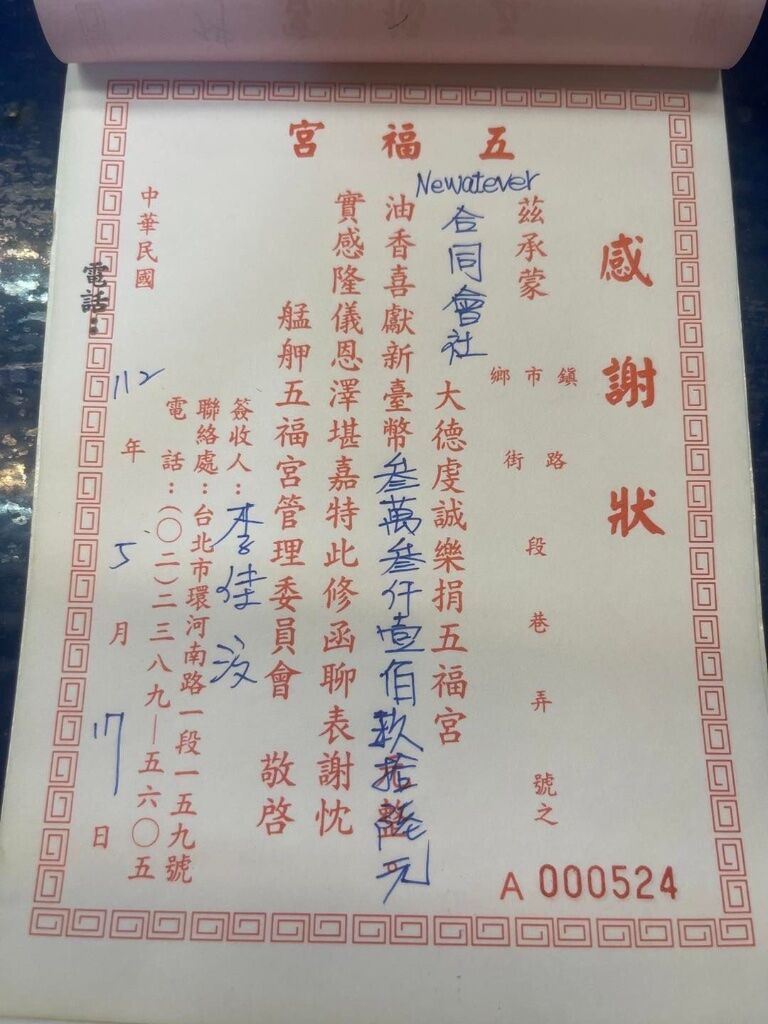 五福宮
感謝狀
鎮 市 鄉
路 街
段
巷
弄
號之
茲承蒙
Newatever
合同會社 大德虔誠樂捐五福宮
油香喜獻新臺幣叁萬叁仟壹佰玖拾陸元
實感隆儀恩澤堪嘉特此修函聊表謝忱
艋舺五福宮管理委員會 敬啓
簽收人：李佳
聯絡處：台北市環河南路一段一五九號
電話：(〇二)二三八九—五六〇五
中華民國 112 年 5 月 17 日
電話：
A 000524